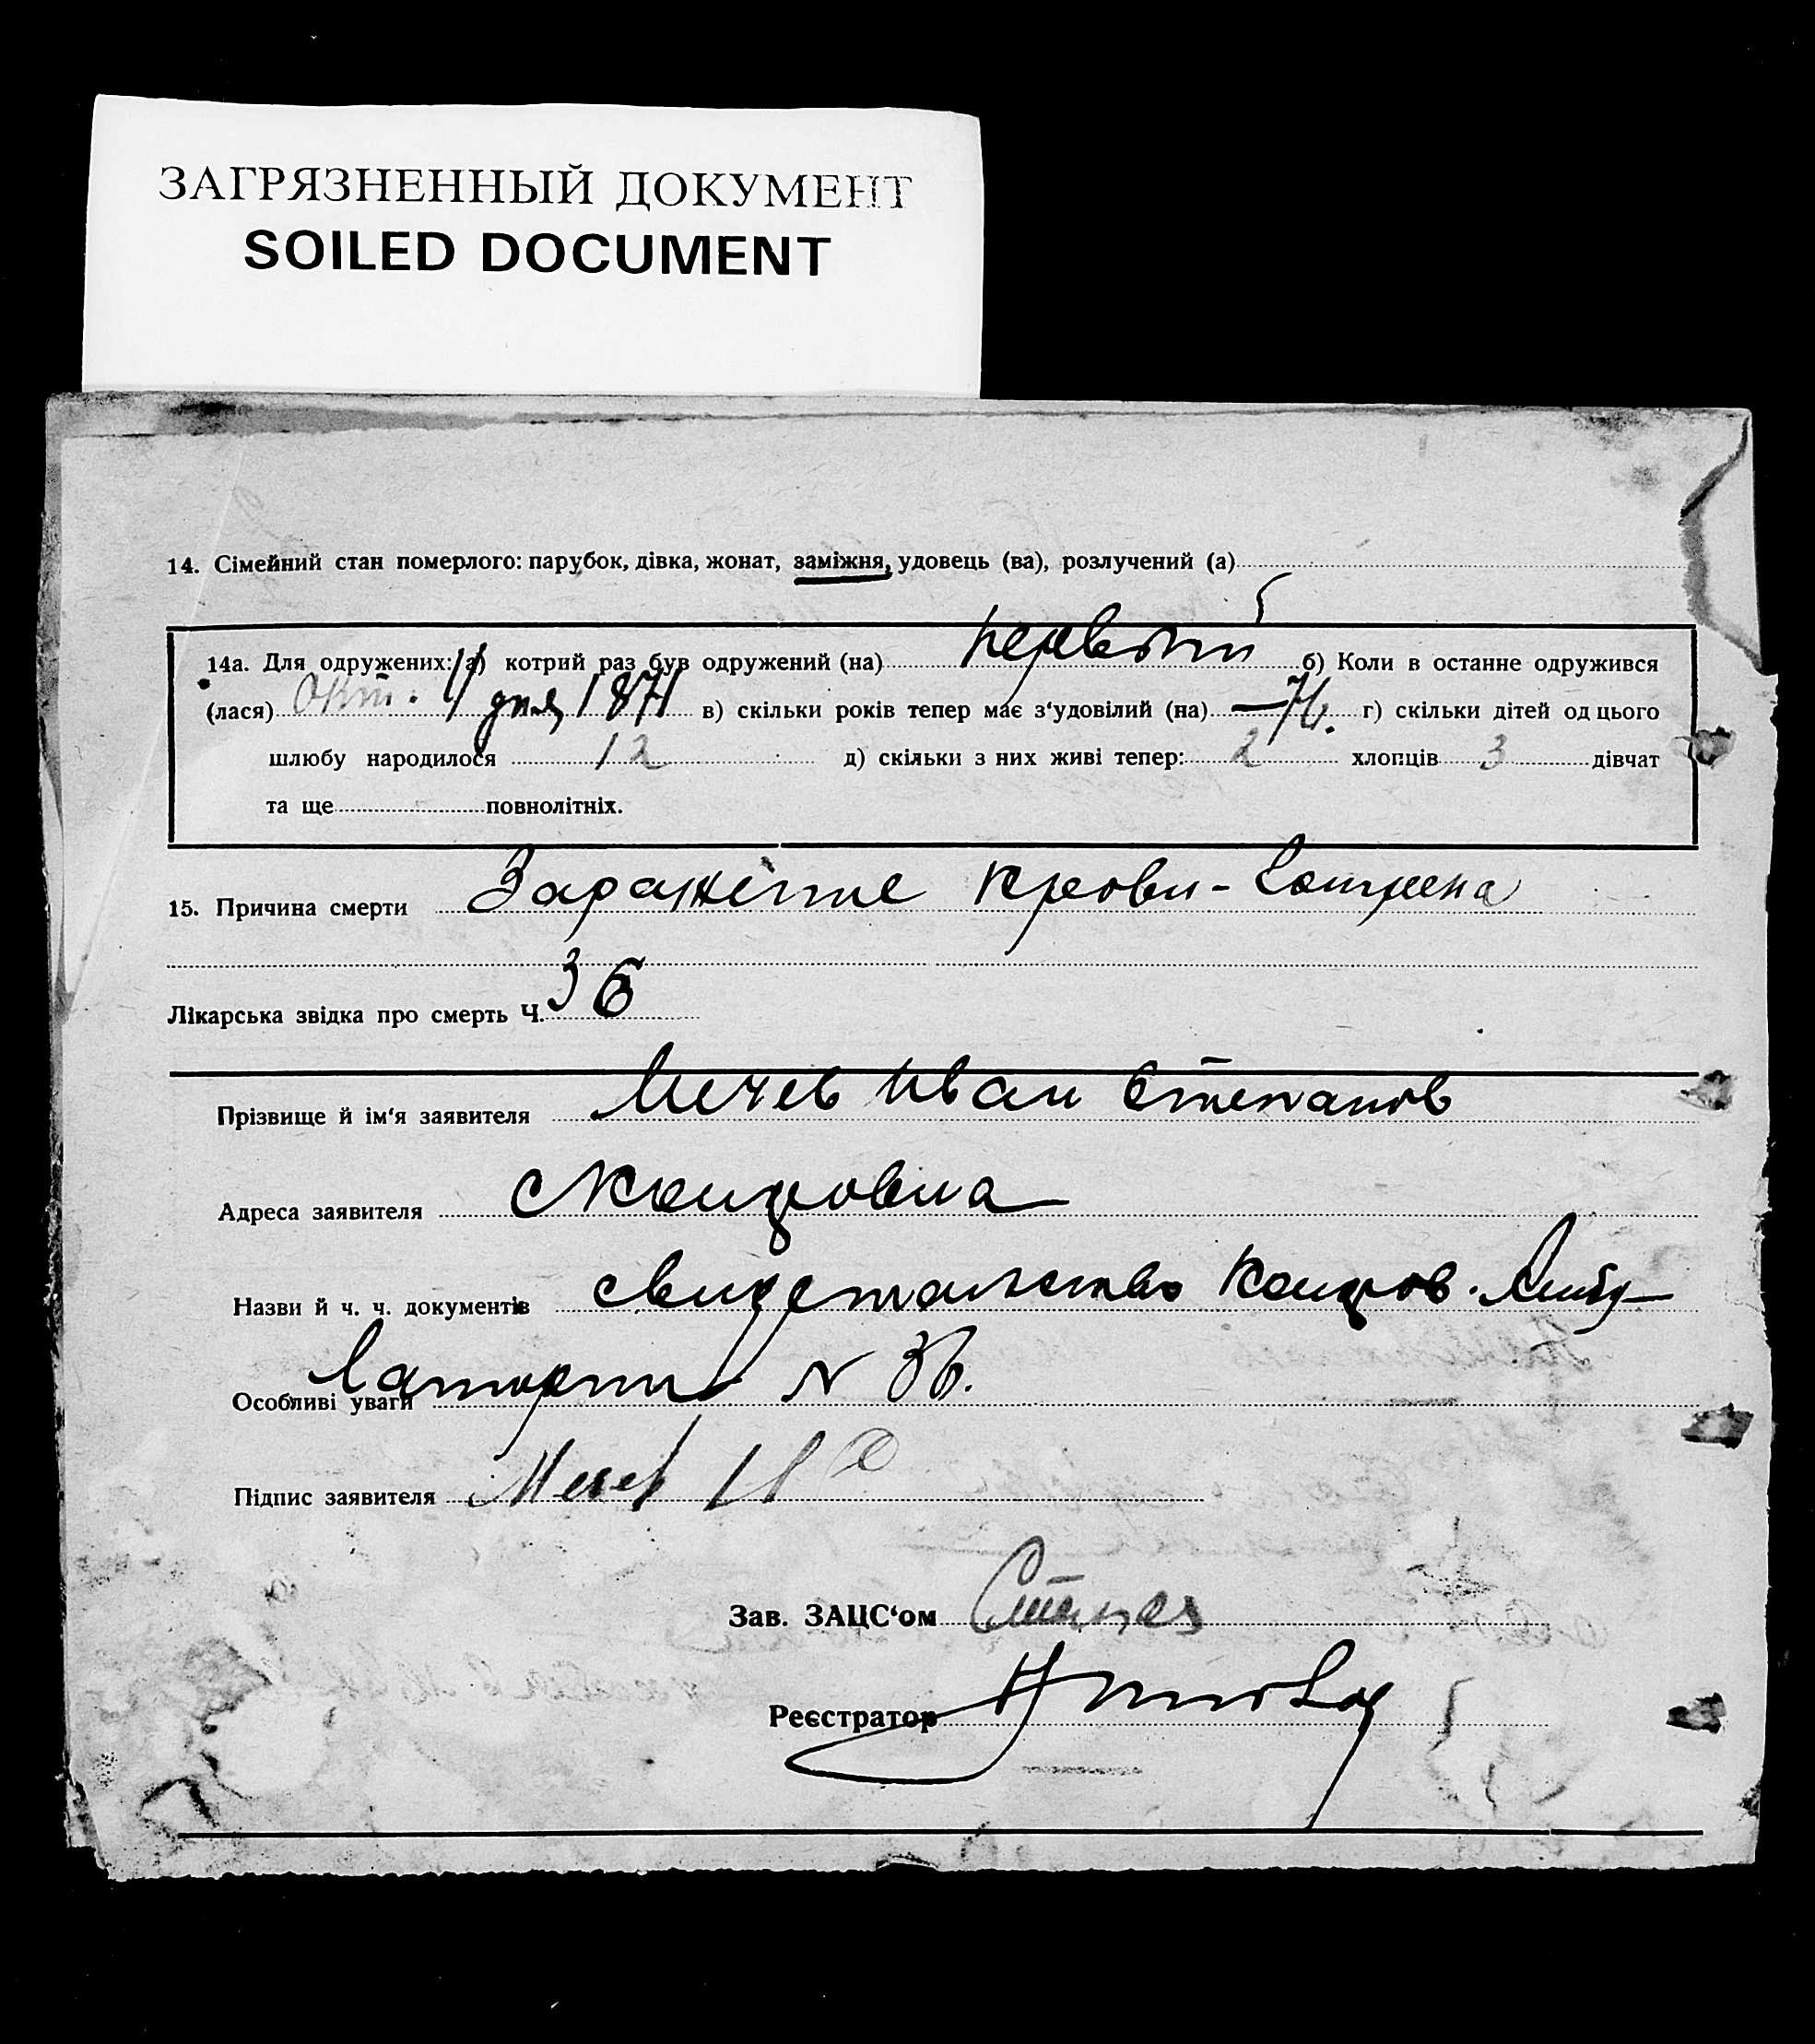 ЗАГРЯЗНЕННЫЙ ДОКУМЕНТ
SOILED DOCUMENT
14. Сімейний стан померлого: парубок, дівка, жонат, заміжня, удовець (ва), розлучений (а)
14а. Для одружених: а) котрий раз був одружений (на) первый б) Коли в останне одружився
(лася) Окт. 11 дня 1871 в) скільки років тепер має з‘удовілий (на) — 76. г) скільки дітей од цього
шлюбу народилося 12 д) скільки з них живі тепер: 2 хлопців 3 дівчат
та ще повнолітніх.
15. Причина смерти Заражение крови - Гангрена
Лікарська звідка про смерть Ч. 36
Прізвище й ім‘я заявителя Мечев Иван Степанов
Адреса заявителя с Каировка
Назви й ч. ч. документів свидетельство Каиров. Амбу-
Особливі уваги латории N 36.
Підпис заявителя Мечев
Зав. ЗАЦС‘ом
Реєстратор